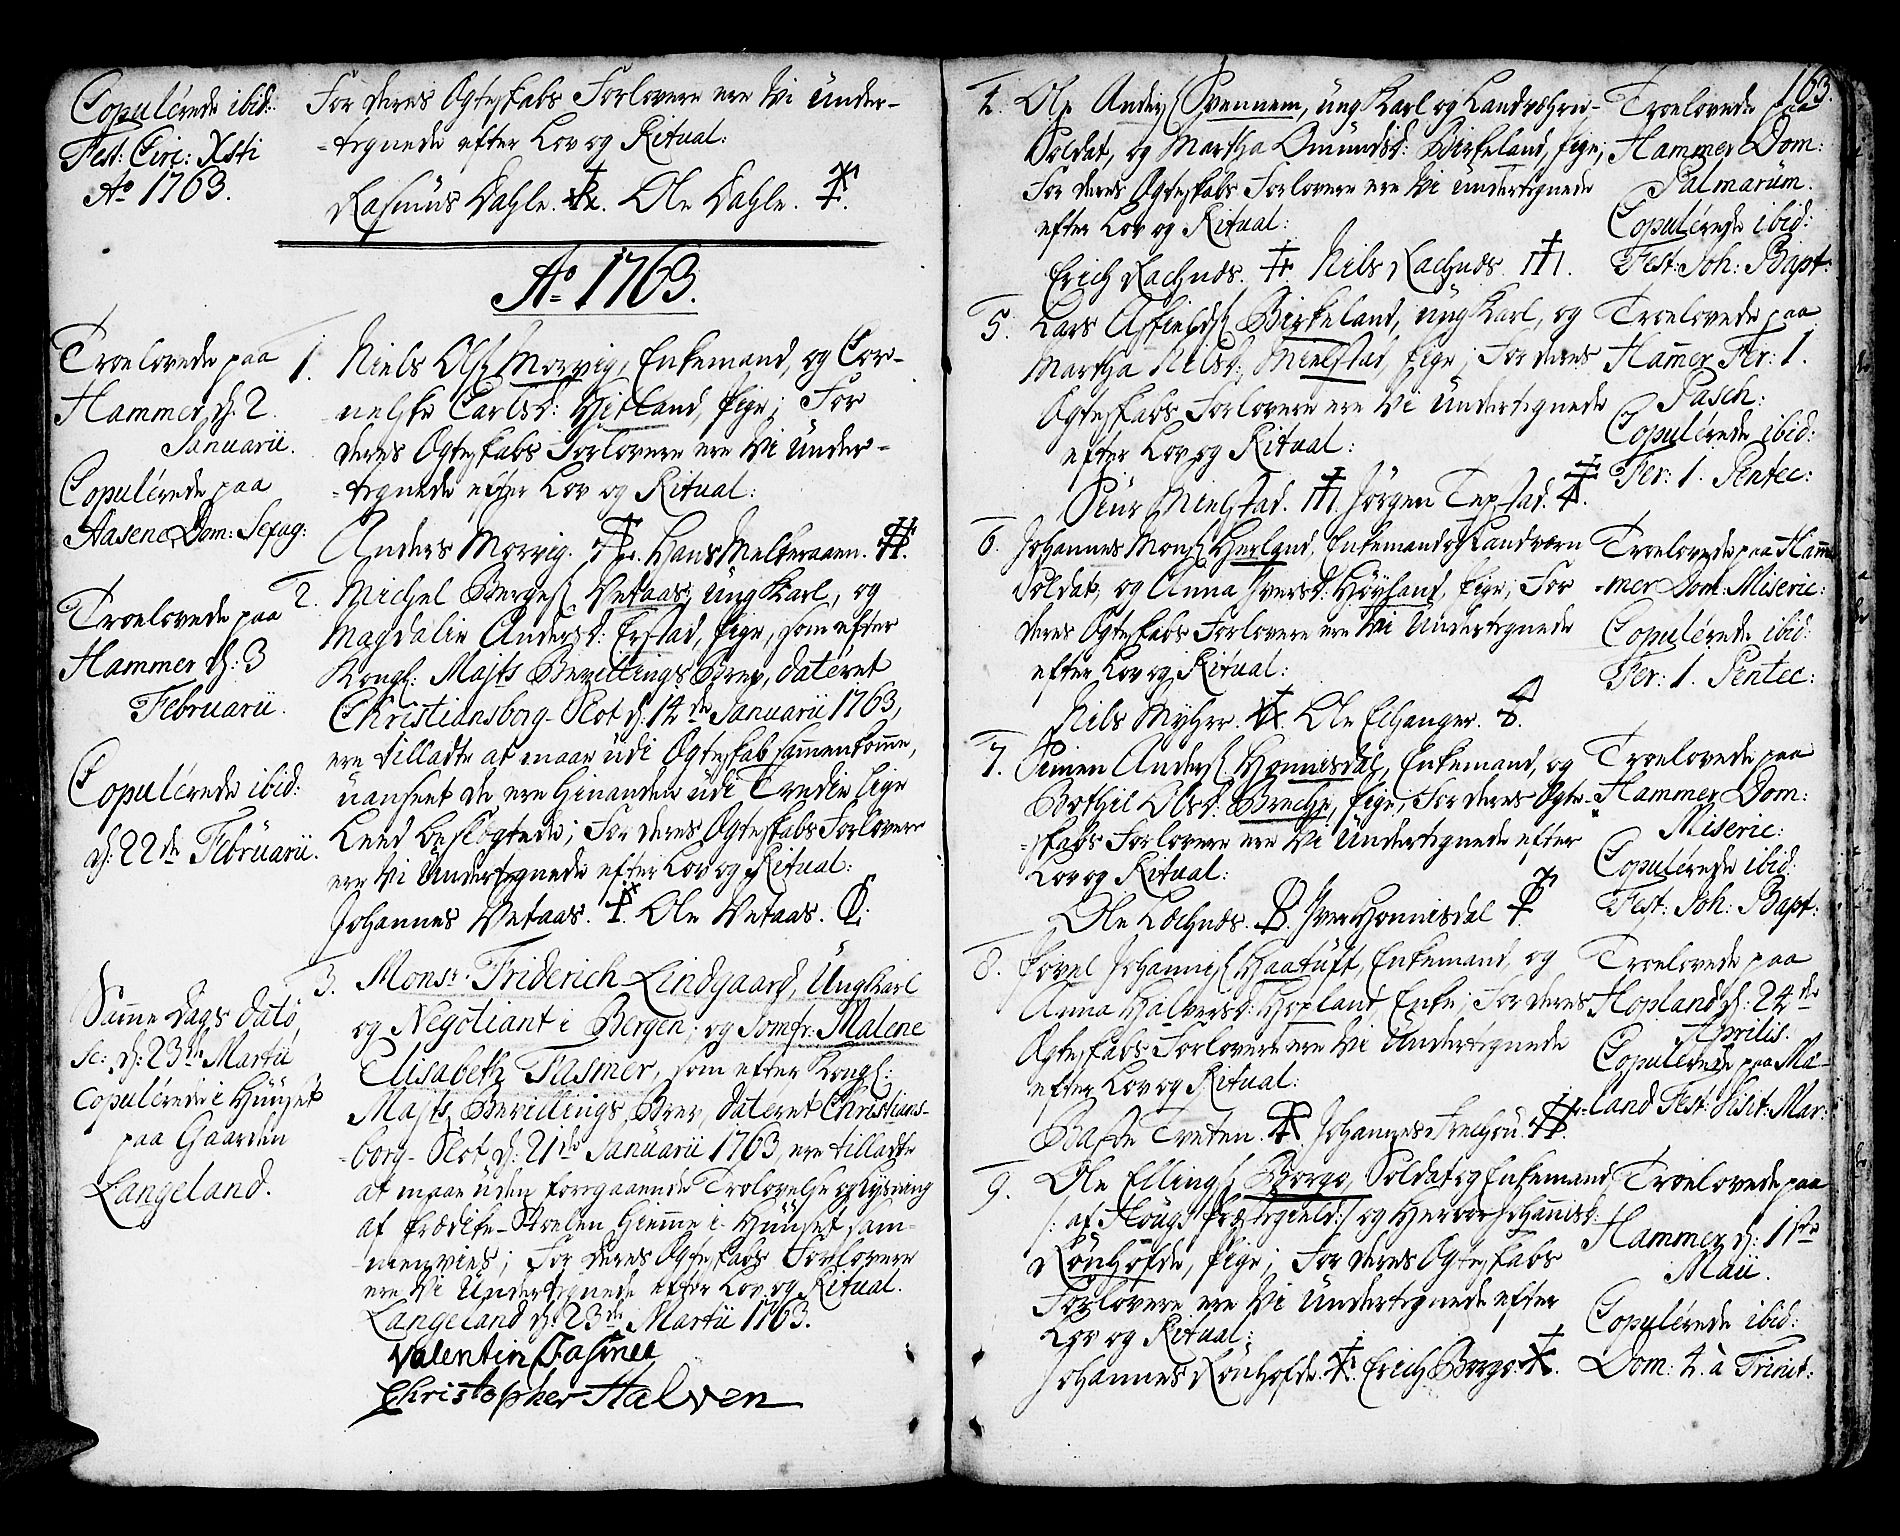 Copulérede ibid:
Fest: Circ: Xsti
Ao 1763.
For deres Ægteskabs Forlovere ere Vi Under-
-tegnede efter Lov og Ritual:
Rasmus Dahle. Ole Dahle.
Ao 1763.
Troelovede paa
Hammer, d. 2
Januarii.
Copulérede paa
Aasene, Dom: Sexag:
1. Niels Ols. Morvig, Enkemand, og Cor-
-nelske Carlsd: Hitland, Pige; For
deres Ægteskabs Forlovere ere Vi Under-
-tegnede efter Lov og Ritual:
Anders Morvig. Hans Melkeraaen.
Troelovede paa
Hammer d: 3
Februarii.
Copulérede ibid:
d: 22de Februarii.
2. Michel Berges. Vetaas, Ung Karl, og
Magdalie Andersd: Erstad, Pige, som efter
Kongl: Majts Bevillings Brev, dateret
Christiansborg-Slot d: 14de Januarii 1763,
ere tilladte at maae udi Ægteskab sammenkomme,
uanseet de ere hinanden udi Tredie lige
Leed beslægtede; For deres Ægteskabs Forlovere
ere Vi Undertegnede efter Lov og Ritual:
Johannes Vetaas. Ole Vetaas.
Samme Dags dato,
sc: d: 23de Martii
Copulérede i Huuset
paa Gaarden
Langeland.
3. Monsr. Friderich Lindgaard, Ung Karl
og Negotiant i Bergen; og Jomfr: Malene
Elisabeth Fasmer, som efter Kongl:
Majts Bevillings Brev, dateret Christians-
-borg-Slot d: 21de Januarii 1763, ere tilladte
at maae uden foregaaende Trolovelse og Lysning
af Prædike-Stoelen hiemme i Huuset sam-
-menvies; For deres Ægteskabs Forlovere
ere Vi Undertegnede efter Lov og Ritual.
Langeland d: 23de Martii 1763.
Valentin Fasmer
Christopher Halven
163.
4. Ole Anders. Svennem, ung Karl og Landværn-
Soldat, og Martha Omundsd: Birkeland, Pige;
For deres Ægteskabs Forlovere ere Vi undertegnede
efter Lov og Ritual:
Erich Rachnæs. Nils Rachnæs.
Troelovede paa
Hammer Dom:
Palmarum.
Copulérede ibid:
Fest: Joh: Bapt:
5. Lars Asfields. Birkeland, ung Karl, og
Martha Nilsd: Mielstad, Pige; For deres
Ægteskabs Forlovere ere Vi Undertegnede
efter Lov og Ritual:
Siur Mielstad. Jørgen Tepstad.
Troelovede paa
Hamer Fer: 1.
Pasch:
Copulérede ibid:
Fer: 1. Pentec:
6. Johannes Mons. Herland, Enkemand og Landværn
Soldat, og Anna Iversd: Høyland, Pige; For
deres Ægteskabs Forlovere ere Vi Undertegnede
efter Lov og Ritual:
Nils Myhre. Ole Echanger.
Troelovede paa Ham-
-mer Dom: Miseric:
Copulérede ibid:
Fer: 1. Pentec:
7. Simen Anders. Honnisdal, Enkemand, og
Bothil Olsd: Breche, Pige; For deres Ægte-
-skabs Forlovere ere Vi Undertegnede efter
Lov og Ritual:
Ole Lochnæs. Iver Honnisdal
Troelovede paa
Hammer Dom:
Miseric:
Copulérede ibid:
Fest: Joh: Bapt:
8. Povel Johannis. Haatuft, Enkemand, og
Anna Halversd: Hopland, Enke; For deres
Ægteskabs Forlovere ere Vi Undertegnede
efter Lov og Ritual:
Baste Tveten. Johannes
Troelovede paa
Hopland d: 24de
Aprilis.
Copulérede paa Mæ-
-land Fest: Visit: Mar:
9. Ole Ellings. Borgo, Soldat og Enkemand
/: af Hougs Præstegield:/ og Herbor Johannisd:
Rønhofde, Pige; For deres Ægteskabs
Forlovere ere Vi Undertegnede efter
Lov og Ritual:
Johannes Rønhofde. Erich Borgo.
Troelovede paa
Hammer d: 1ste
Maii.
Copulérede ibid:
Dom: 4. à Trinit: